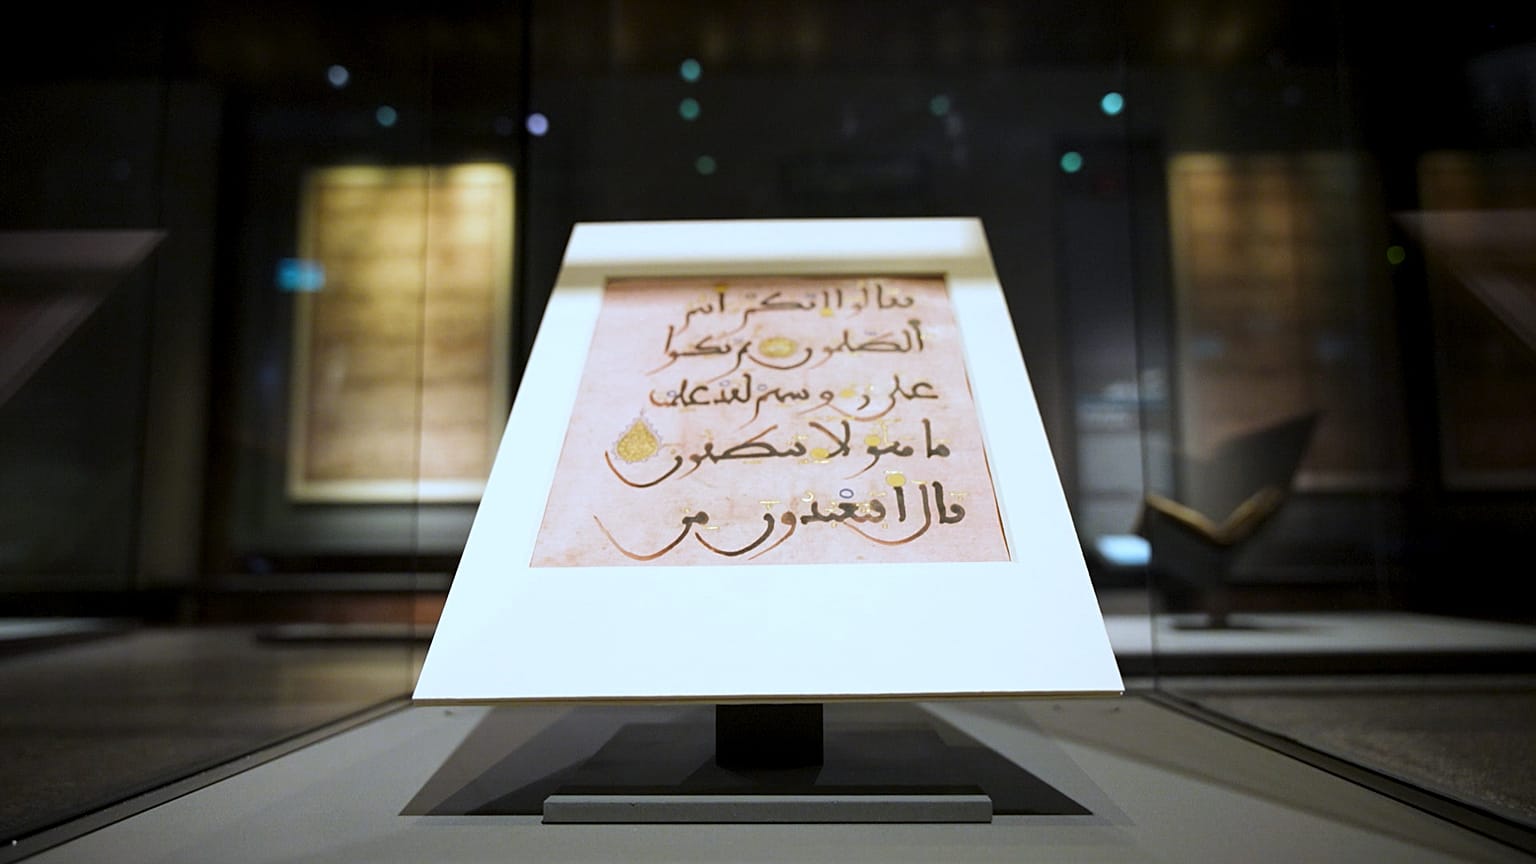 فقالوا إنكم أنتم
ٱلظلمون ثم نكسوا
على رءوسهم لقد علمت
ما هؤلاء ينطقون
قال أفتعبدون من